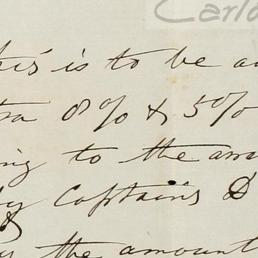 Carlo
this is to be a
0% & 50%
ing to the am
by Captains D
&
the amount